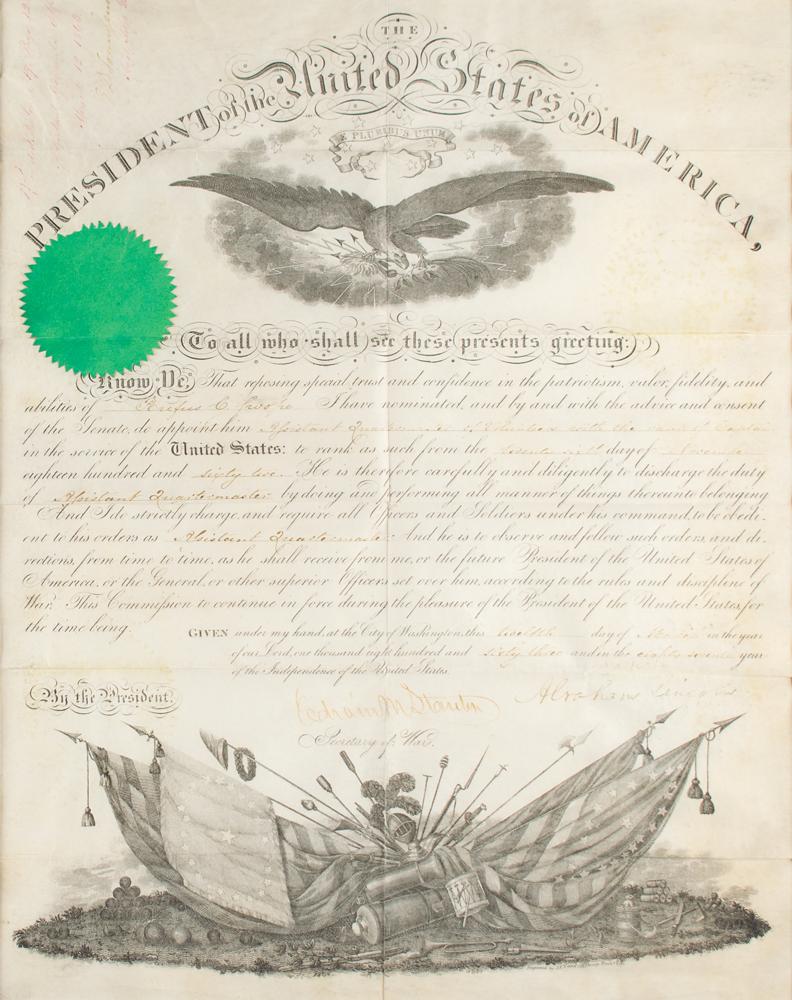 THE
PRESIDENT of the United States of AMERICA,
E PLURIBUS UNUM
To all who shall see these presents greeting:
Know Ye, That reposing special trust and confidence in the patriotism, valor, fidelity, and
abilities of Rufus C. I have nominated, and by and with the advice and consent
of the Senate, do appoint him Assistant Quartermaster of Volunteers with the rank of Captain
in the service of the United States: to rank as such from the day of November
eighteen hundred and sixty two. He is therefore carefully and diligently to discharge the duty
of Assistant Quartermaster by doing and performing all manner of things thereunto belonging
And I do strictly charge, and require all Officers and Soldiers under his command, to be obedi-
ent to his orders as Assistant Quartermaster And he is to observe and follow such orders, and di-
rections, from time to time, as he shall receive from me, or the future President of the United States of
America, or the General, or other superior Officers set over him, according to the rules and discipline of
War. This Commission to continue in force during the pleasure of the President of the United States, for
the time being.
GIVEN under my hand, at the City of Washington, this twelfth day of March in the year
of our Lord, one thousand eight hundred and sixty three and in the eighty seventh year
of the Independence of the United States.
By the President.
Abraham Lincoln
Edwin M Stanton
Secretary of War.